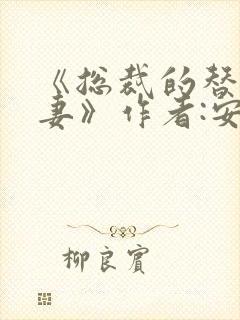 《总裁的替
妻》作者:安
柳良宾